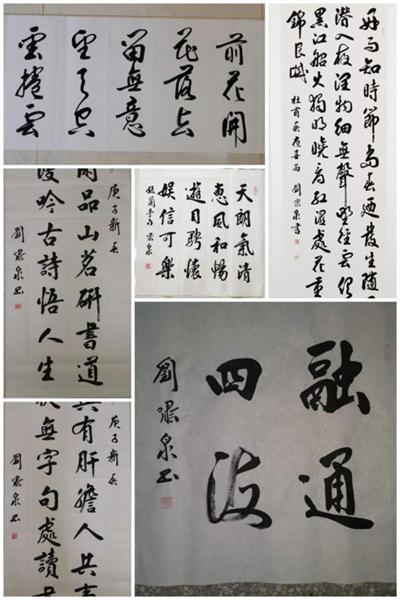 前花開
花落去
留無意
望天空
雲捲雲
好雨知時節當春廼發生隨
潛入夜潤物細無聲野徑雲俱
黑江船火獨明曉看紅濕處花重
錦官城 杜甫春夜喜雨 劉泉書
天朗氣清
惠風和暢
遊目騁懷
娛信可樂
錄蘭亭句 泉
庚子新春
品山茗研書道
吟古詩悟人生
劉泉書
庚子新春
具有肝膽人共事
無字句處讀
劉泉書
融通
四海
劉泉書